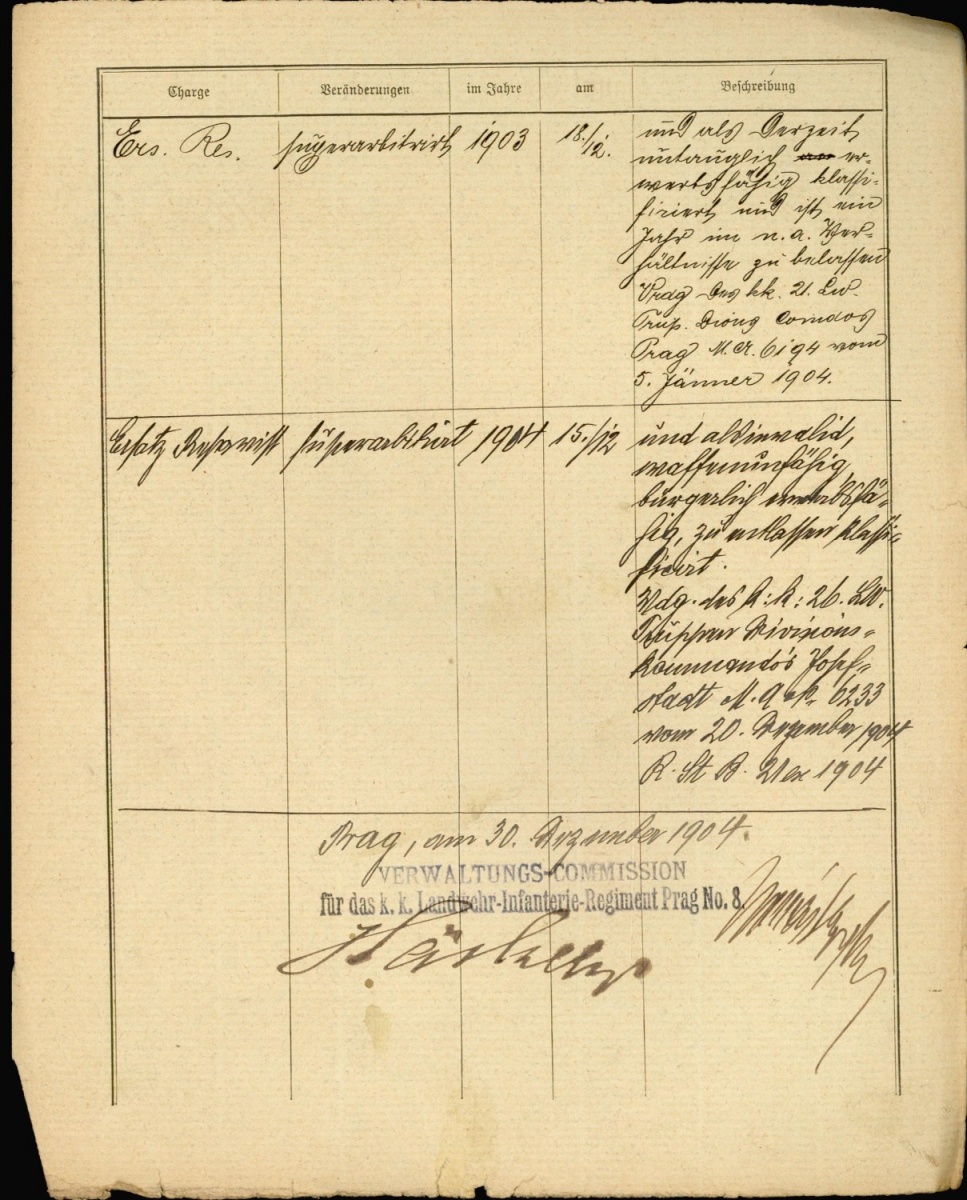 Charge Veränderungen im Jahre am Beschreibung
Ers. Res. superarbitrirt 1903 18./12. und als Derzeit
untauglich er-
werbsfähig klassi-
ficiert und ist ein
Jahr im n. a. Ver-
hältnisse zu belassen
Vrdg des kk. 21. Lw.
Trup. Divns Comdos
Prag M. A. 6194 vom
5. Jänner 1904.
Ersatz Reservist superarbitrirt 1904 15./12 und als invalid,
waffenunfähig,
bürgerlich erwerbsfä-
hig, zu entlassen klassi-
ficirt.
Vdg. des k: k: 26. LW.
Truppen Divisions-
kommandos Josef-
stadt M. A. 6233
vom 20. Dezember 1904
R. St B. 21 ex 1904
Prag, am 30. Dezember 1904.
VERWALTUNGS-COMMISSION
für das k. k. Landwehr-Infanterie-Regiment Prag No. 8.